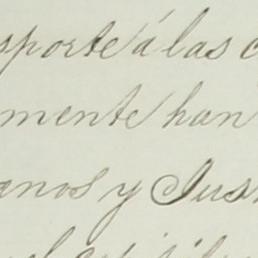 sporte á las c
mente han
anos y Jus